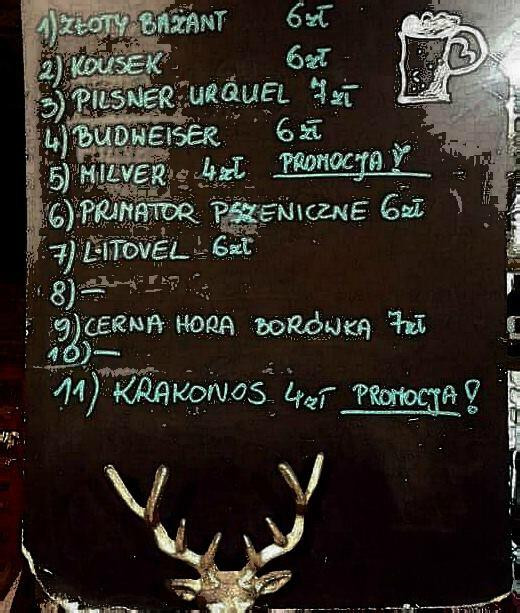 1) ZŁOTY BAŻANT 6zł
2) KOUSEK 6zł
3) PILSNER URQUEL 7zł
4) BUDWEISER 6zł
5) MILVER 4zł PROMOCJA!
6) PRIMATOR PSZENICZNE 6zł
7) LITOVEL 6zł
8) —
9) CERNA HORA BORÓWKA 7zł
10) —
11) KRAKONOS 4zł PROMOCJA!